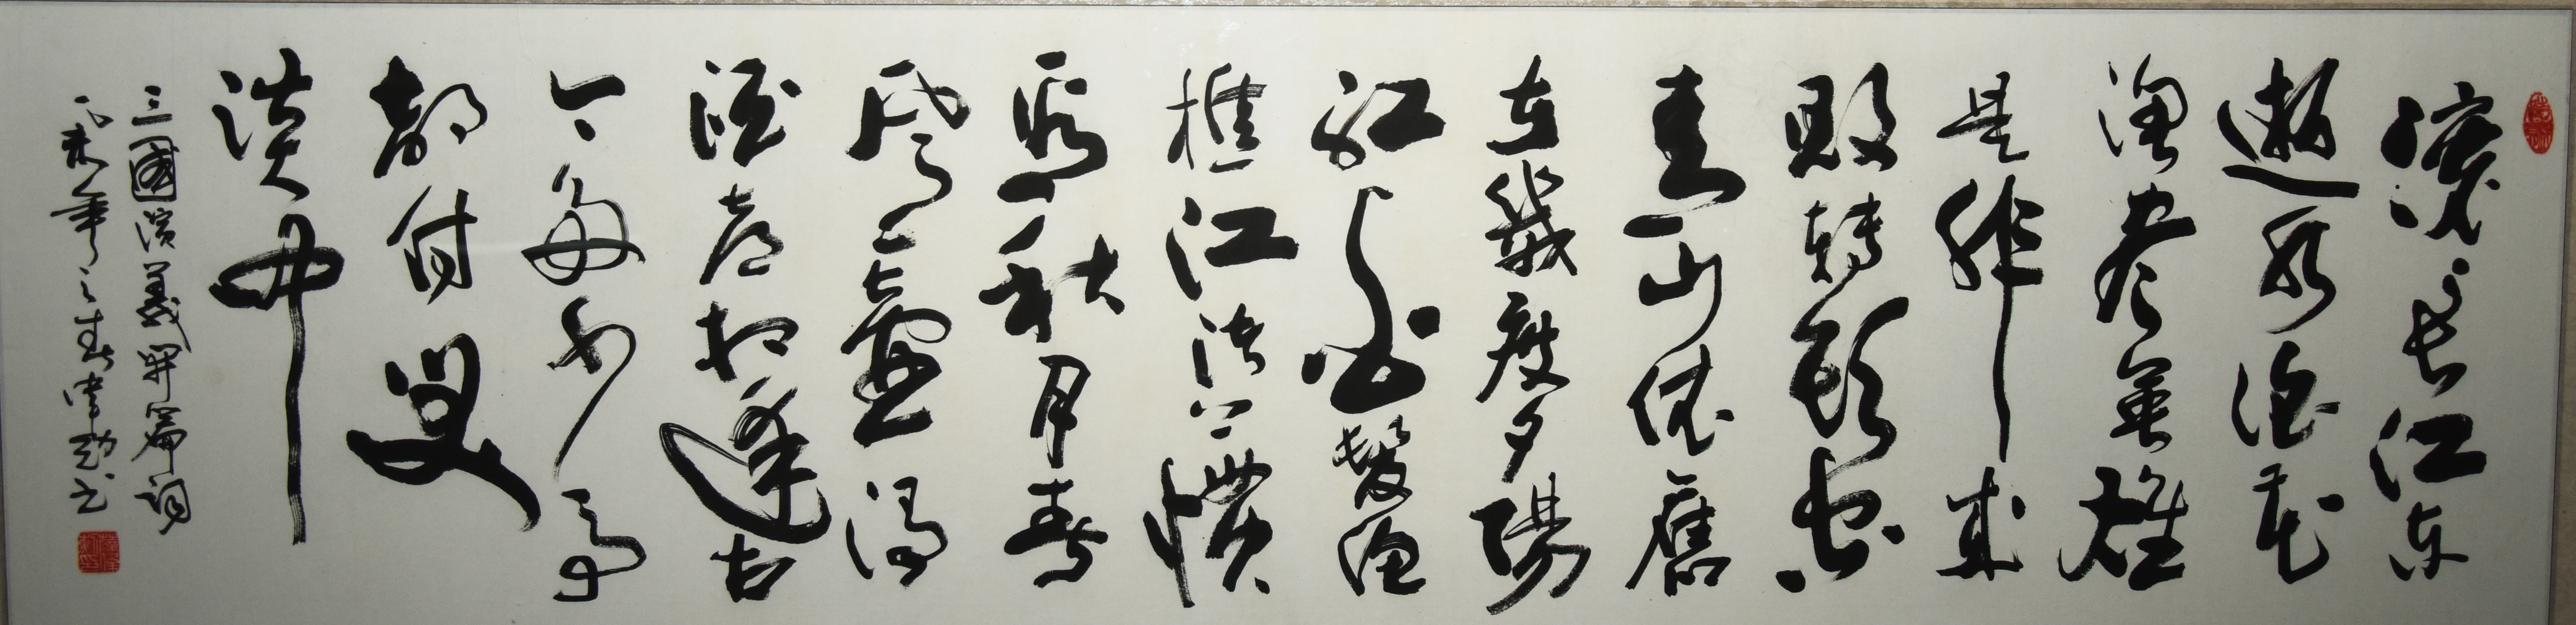 滚滚长江东
逝水浪花
淘尽英雄
是非成
败转头空
青山依舊
在幾度夕陽
红白髮渔
樵江渚上惯
看秋月春
风一壶浊
酒喜相逢古
今多少事
都付笑
谈中
三國演義開篇詞
乙未年之春 书